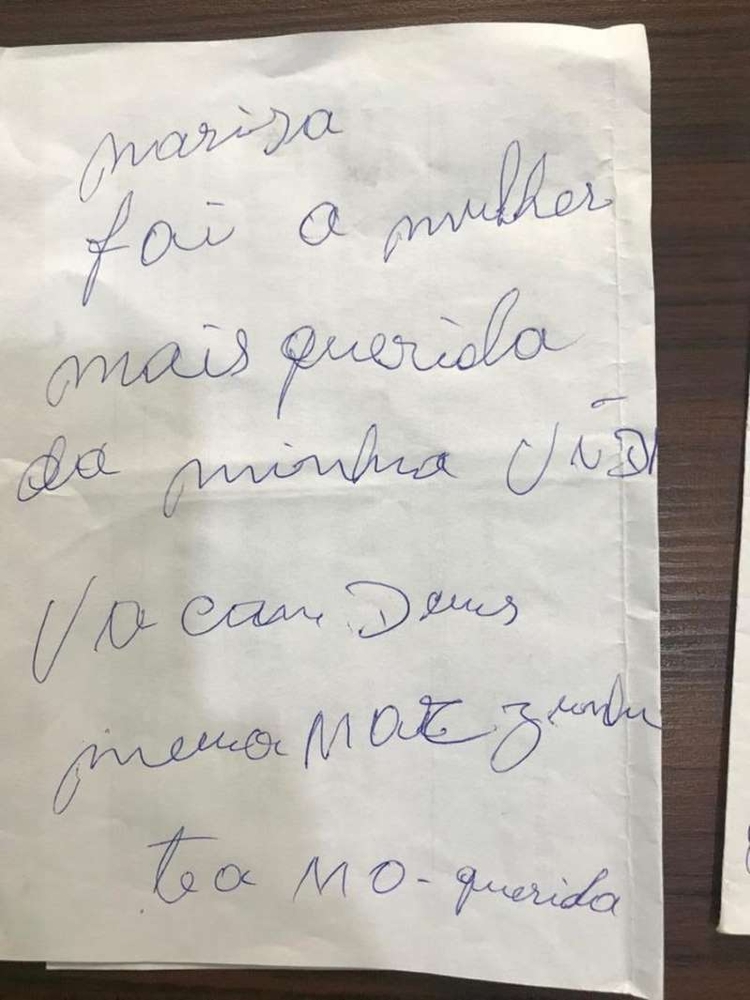 mariza
foi a mulher
mais querida
da minha VIDA
Va com Deus
minha MAEzinha
te a MO-querida